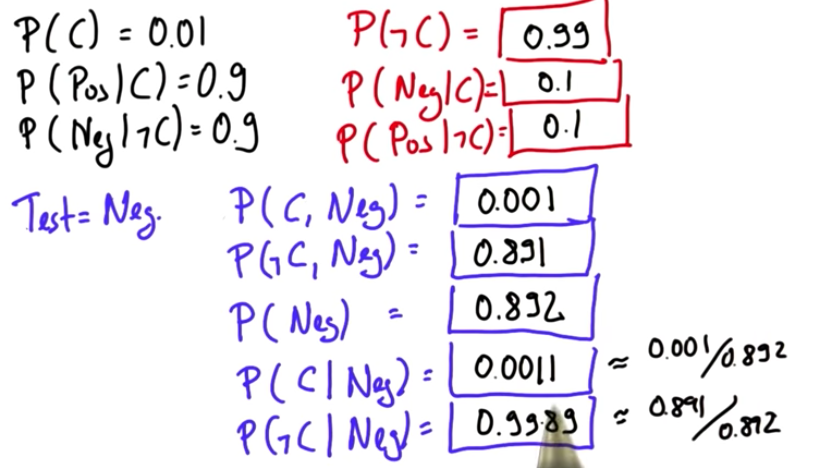 P(C) = 0.01 P(¬C) = 0.99
P(Pos|C) = 0.9 P(Neg|C) = 0.1
P(Neg|¬C) = 0.9 P(Pos|¬C) = 0.1
Test = Neg. P(C, Neg) = 0.001
P(¬C, Neg) = 0.891
P(Neg) = 0.892
P(C|Neg) = 0.0011 ≈ 0.001/0.892
P(¬C|Neg) = 0.9989 ≈ 0.891/0.892